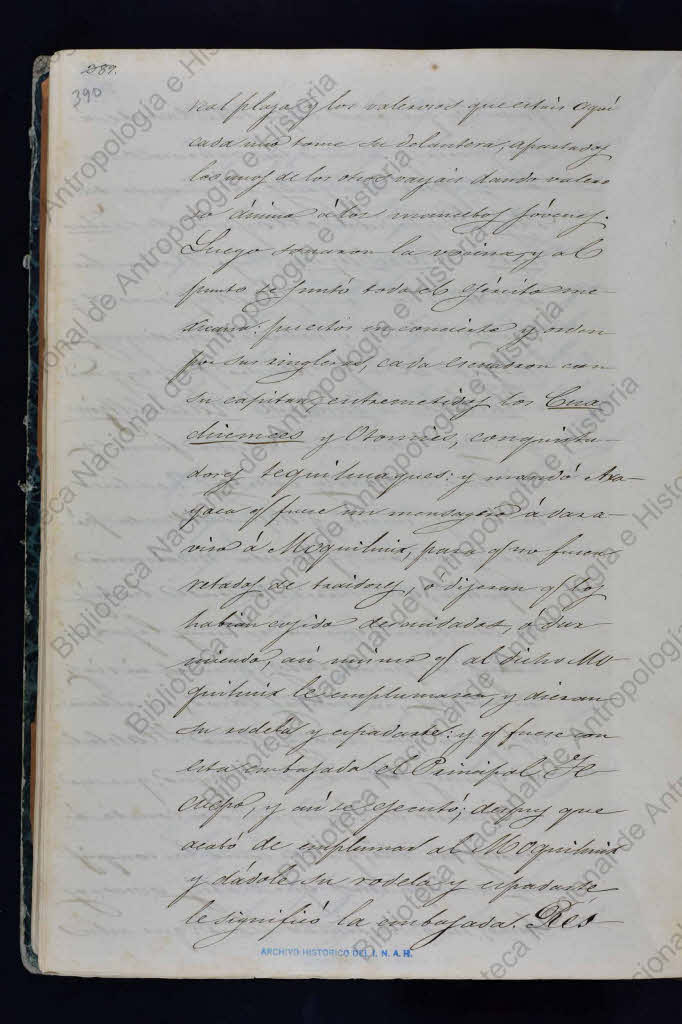 289.
390
real plaza, y los valerosos que estais aquí
cada uno tome su delantera, apartados
los unos de los otros vayais dando valero
so ánimo á los mancebos jóvenes.
Luego sonaron la vocina, y al
punto se juntó todo el ejército me-
xicano: puestos en concierto y orden
por sus ringleras, cada escuadron con
su capitan, entremetidos los Cua
chicmees y Otomies, conquista-
dores tequihuaques: y mandó Axa-
yaca q̃ fuese un mensagero á dar a
viso á Moquihuix, para q̃ no fuesen
retados de traidores, o dijeran q̃ los
habian cojido descuidados, ó dur
miendo, asi mismo q̃ al dicho Mo
quihuix le emplumasen, y dieran
su rodela y espadarte: y q̃ fuese con
esta embajada el Principal
y asi se ejecutó; despues que
acabó de emplumar al Moquihuix
y dádole su rodela y espadarte
le significó la embajada. Res-
ARCHIVO HISTORICO DEL I. N. A. H.
Biblioteca Nacional de Antropología e Historia